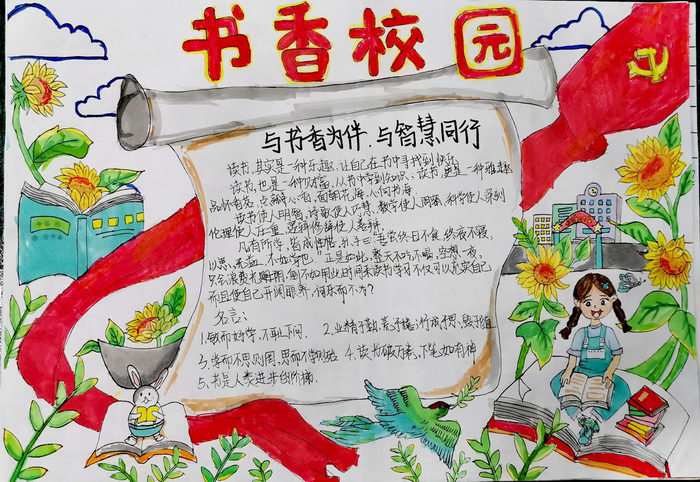 书香校园
与书香为伴.与智慧同行
读书,其实是一种乐趣,让自己在书中寻找到快乐
读书,也是一种财富,从书中学到知识、读书,更是一种雅趣
品怀香茗,点一心香,面朝花海,心向书海
读书使人明智,诗歌使人巧慧,数学使人周密,科学使人深刻
伦理使人庄重,逻辑修辞使人善辩
凡有所学,皆成性格,孔子曰"吾尝终日不食,终夜不寝,
以思,无益,不如学也"正是如此,整天不吃不喝,空想一夜,
只会浪费大好时间,倒不如用此时间来读书学习不仅可以充实自己
而且使自己开阔眼界,何乐而不为?
名言:
1.敏而好学,不耻下问.
2.业精于勤,荒于嬉;行成于思,毁于随
3.学而不思则罔,思而不学则殆
4.读书破万卷,下笔如有神
5.书是人类进步的阶梯.